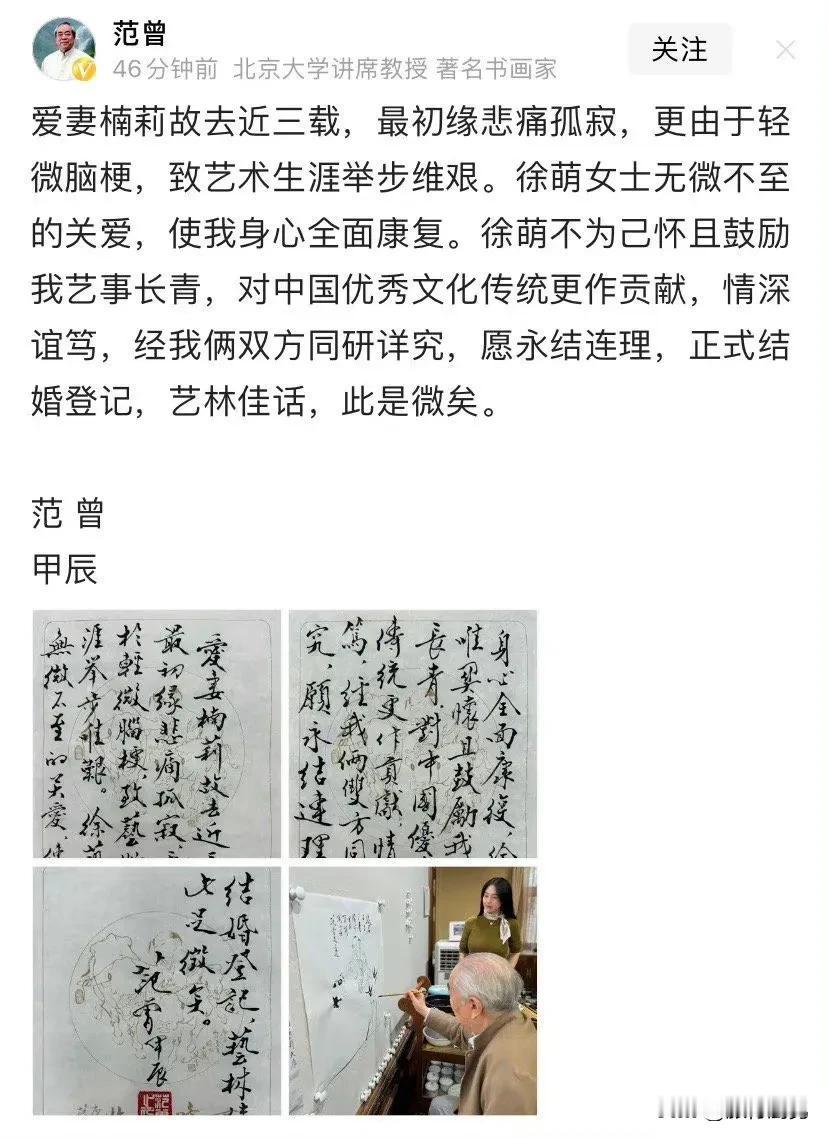 范曾
46分钟前 北京大学讲席教授 著名书画家
关注
爱妻楠莉故去近三载，最初缘悲痛孤寂，更由于轻
微脑梗，致艺术生涯举步维艰。徐萌女士无微不至
的关爱，使我身心全面康复。徐萌不为己怀且鼓励
我艺事长青，对中国优秀文化传统更作贡献，情深
谊笃，经我俩双方同研详究，愿永结连理，正式结
婚登记，艺林佳话，此是微矣。
范 曾
甲辰
愛妻楠莉故去近
最初缘悲痛孤寂，
於輕微腦梗，致藝
涯举步唯艱。徐萌
無微不至的关愛，
身心全面康復，徐
唯懷且鼓勵我
長青，對中國優
傳統更作貢獻，情
篤，經我俩雙方同
究，願永结連理
结婚登記，藝林
此足徵矣。
范曾甲辰